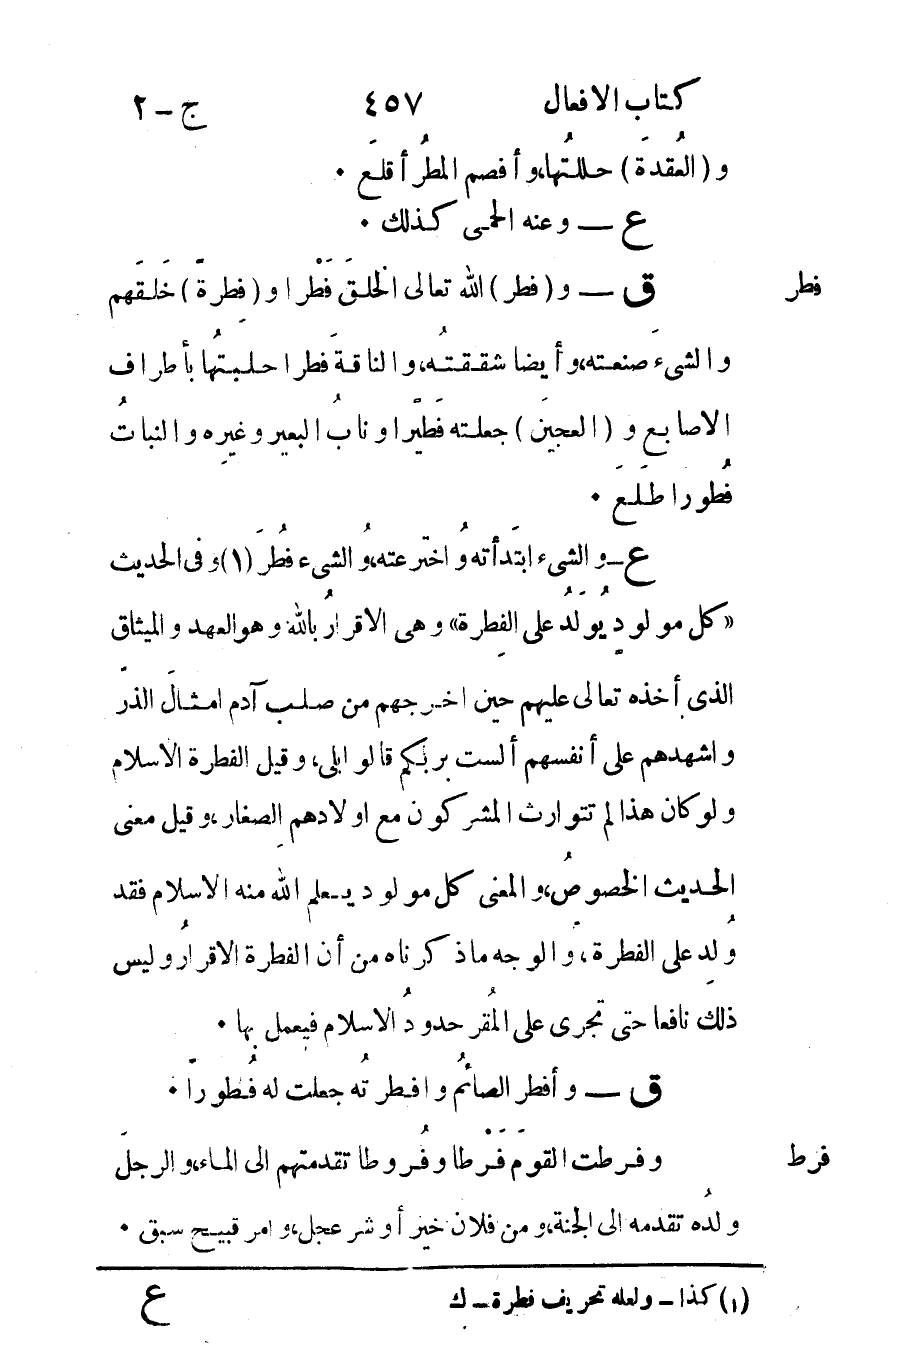 كتاب الافعال ٤٥٧ ج - ٢
و (العُقدَة) حللتُها، و أفصم المطرُ أقلعَ ٠
ع — وعنه الحمى كذلك ٠
فطر ق — و (فطر) الله تعالى الخلقَ فَطْرا و (فِطرةً) خَلَقَهم
و الشىءَ صنعته، و أيضا شققتُه، و الناقةَ فطرا حلبتُها بأطراف
الاصابع و (العجينَ) جعلته فَطيرًا و نابُ البعيرِ وغيره و النباتُ
فُطورا طَلَعَ ٠
ع - و الشىءَ ابتدأته و اخترعته، و الشىء فُطرَ (١) و فى الحديث
«كل مولودٍ يُولَدُ على الفِطرة» و هى الاقرارُ بالله و هو العهد و الميثاق
الذى أخذه تعالى عليهم حين اخرجهم من صلب آدم امثالَ الذرّ
و اشهدهم على أنفسهم ألست بربكم قالوا بلى، و قيل الفطرة الاسلام
و لو كان هذا لم تتوارث المشركون مع اولادهم الصغار، و قيل معنى
الحديث الخصوصُ، و المعنى كل مولود يعلم الله منه الاسلام فقد
وُلِد على الفطرة، و الوجه ما ذكرناه من أن الفطرة الاقرارُ و ليس
ذلك نافعا حتى تجرى على المُقر حدودُ الاسلام فيعمل بها ٠
ق — و أفطر الصائمُ و افطرتُه جعلت له فُطورًا ٠
فرط و فرطت القومَ فَرْطا و فُروطا تقدمتهم الى الماء، و الرجلَ
ولدُه تقدمه الى الجنة، و من فلان خير أو شر عجل، و امر قبيح سبق ٠
(١) كذا - ولعله تحريف فطرة - ك
ع